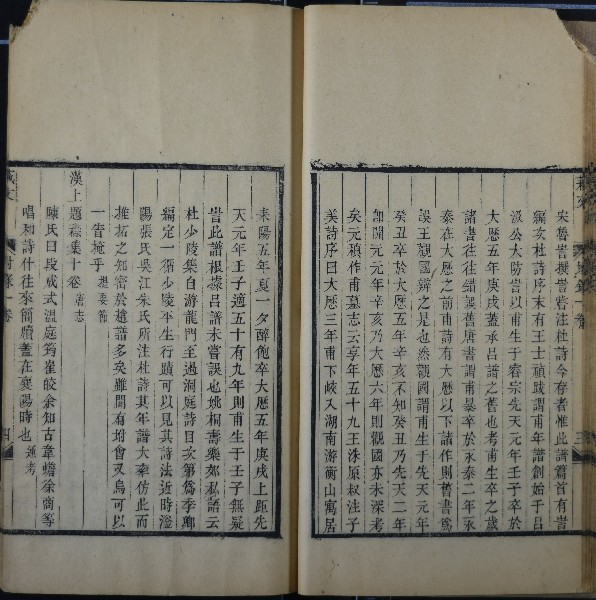 矣魯訔撰訔嘗注杜詩今存者惟此譜篇首有訔
編次杜詩序末有王士禎跋謂甫年譜創始于呂
汲公大防訔以甫生于睿宗先天元年壬子卒於
大歷五年庚戌蓋承呂譜之舊也考甫生卒之歲
諸書往往歧異舊唐書謂甫暴卒於永泰二年永
泰在大歷之前甫詩有大歷以下諸作則舊書爲
誤王觀國辨之是也然觀國謂甫生于先天元年
癸丑卒於大歷五年辛亥不知癸丑乃先天二年
即開元元年辛亥乃大歷六年則觀國亦未深考
矣元稹作甫墓志云享年五十九王洙原叔注子
美詩序曰大歷三年甫下峽入湖南游衡山寓居
耒陽五年夏一夕醉飽卒大歷五年庚戌上距先
天元年壬子適五十有九年則甫生于壬子無疑
訔此譜根據呂譜未嘗誤也姚桐壽樂郊私語云
杜少陵集自游龍門至過洞庭詩目次第爲季卿
編定一循少陵平生行蹟可以見其詩法近時滏
陽張氏吳江朱氏所注杜詩其年譜大率仿此而
推拓之知密於趙譜多矣雖間有坿會又烏可以
一眚掩乎 提要節
漢上題襟集十卷 唐志
陳氏曰段成式溫庭筠崔皎余知古韋蟾徐商等
唱和詩什往來簡牘蓋在襄陽時也 通考
附錄一卷
四
三